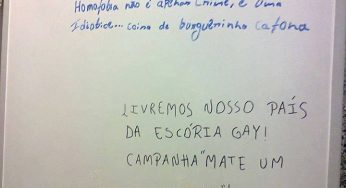 Homofobia não é apenas crime, é uma
idiotice... coisa de burguesinho cafona
LIVREMOS NOSSO PAÍS
DA ESCÓRIA GAY!
CAMPANHA "MATE UM